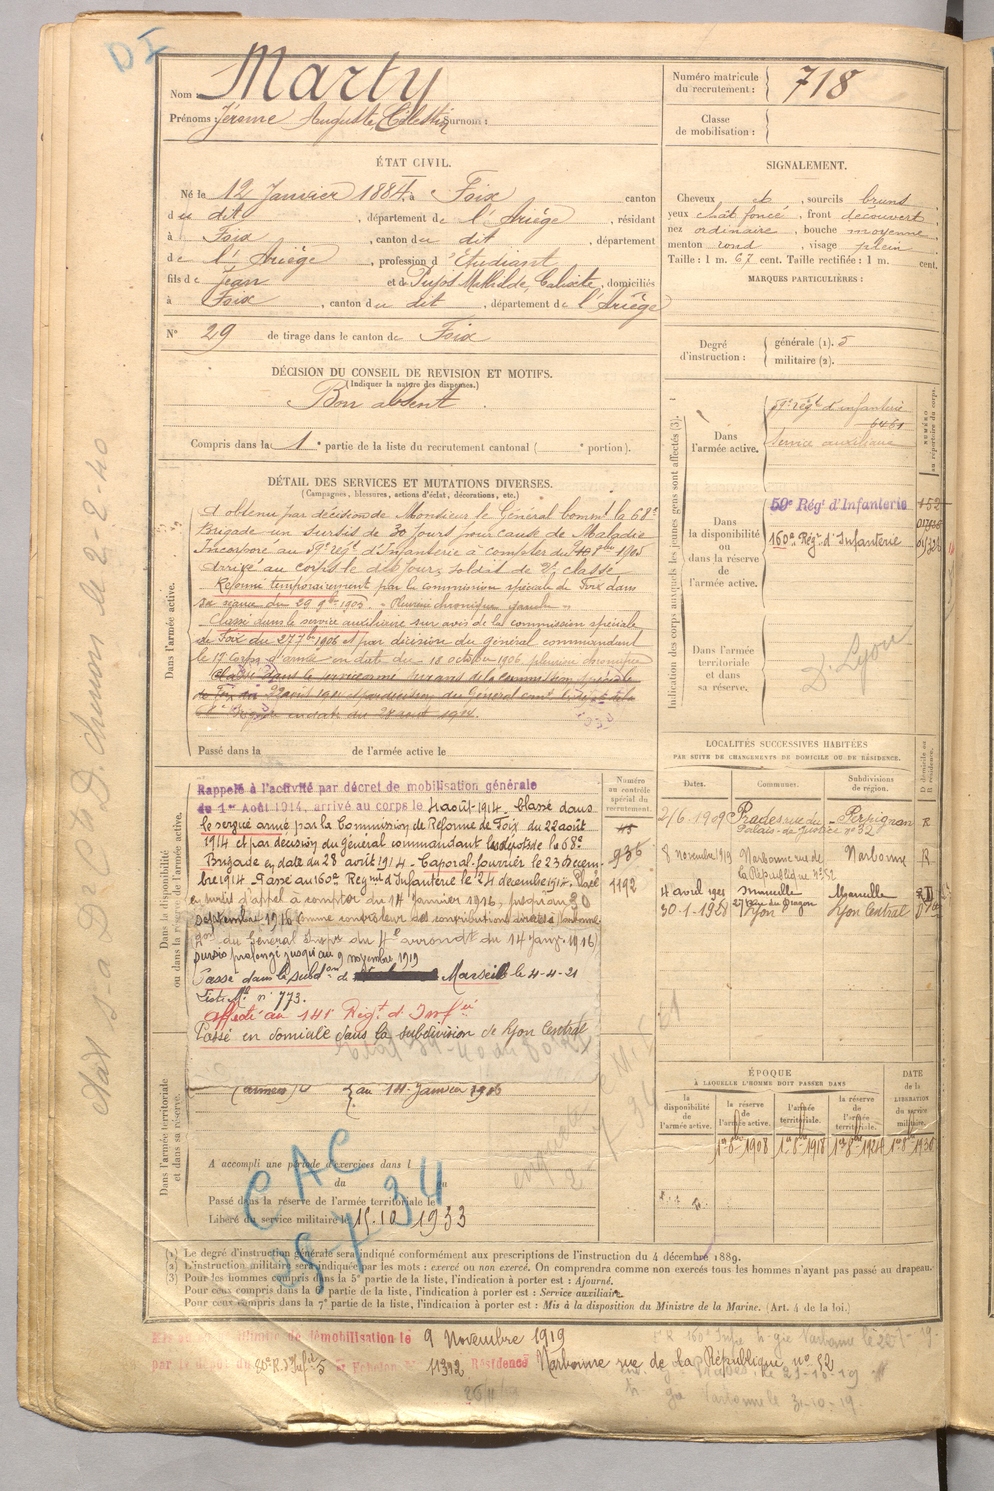 DI
Nom : Marty
Prénoms : Jérome Auguste, Célestin Surnom :
Numéro matricule du recrutement : 718
Classe de mobilisation :
ÉTAT CIVIL.
Né le 12 Janvier 1884, à Foix canton
du dit, département de l'Ariège, résidant
à Foix, canton du dit, département
de l'Ariège, profession d'étudiant
fils de Jean et de Pujos Mathilde, Calixte, domiciliés
à Foix, canton du dit, département de l'Ariège
N° 29 de tirage dans le canton de Foix
SIGNALEMENT.
Cheveux ch, sourcils bruns
yeux chât foncé, front découvert
nez ordinaire, bouche moyenne
menton rond, visage plein
Taille : 1 m. 67 cent. Taille rectifiée : 1 m. cent.
MARQUES PARTICULIÈRES :
Degré d'instruction : générale (1). 5
militaire (2).
DÉCISION DU CONSEIL DE REVISION ET MOTIFS.
(Indiquer la nature des dispenses.)
Bon absent
Compris dans la 1e partie de la liste du recrutement cantonal ( e portion).
DÉTAIL DES SERVICES ET MUTATIONS DIVERSES.
(Campagnes, blessures, actions d'éclat, décorations, etc.)
Dans l'armée active.
A obtenu par décision de Monsieur le Général Commt la 68e
Brigade un sursis de 30 jours pour cause de Maladie
Incorporé au 59e régt d'Infanterie à compter du 8bre 1905
Arrivé au corps le dit jour, soldat de 2e classe
Réformé temporairement par la commission spéciale de Foix dans
sa séance du 29 9bre 1905. "Pleurésie chronique gauche"
Classé dans le service auxiliaire sur avis de la commission spéciale
de Foix du 27 7bre 1906 et par décision du général commandant
le 17e Corps d'armée en date du 18 octobre 1906 pleurésie chronique
Classé dans le service armé sur avis de la commission spéciale
de Foix du 22 août 1914 et par décision du Général cant le dépôt de la
68e Brigade en date du 28 août 1914.
Passé dans la de l'armée active le
Indication des corps auxquels les jeunes gens sont affectés (3).
NUMÉRO au répertoire du corps.
Dans l'armée active.
59e régt d'infanterie
6451
Service auxiliaire
Dans la disponibilité ou dans la réserve de l'armée active.
59e Régt d'Infanterie 152
160e Régt d'Infanterie
Dans l'armée territoriale et dans sa réserve.
D. Lyon
LOCALITÉS SUCCESSIVES HABITÉES
PAR SUITE DE CHANGEMENTS DE DOMICILE OU DE RÉSIDENCE.
Dates. Communes. Subdivisions de région. D domicile ou R résidence.
2/6-1909 Prades rue du Palais-de Justice n° 32 Perpignan R
8 novembre 1919 Narbonne rue de la République n° 52 Narbonne R
4 avril 1921 Marseille Marseille
30-1-1928 Lyon Lyon Central
Dans la disponibilité ou dans la réserve de l'armée active.
Numéro au contrôle spécial du recrutement.
936
1192
Rappelé à l'activité par décret de mobilisation générale
du 1er Août 1914, arrivé au corps le 4 août 1914. Classé dans
le service armé par la Commission de Réforme de Foix du 22 août
1914 et par décision du général commandant les dépôts de la 68e
Brigade en date du 28 août 1914 - Caporal-fourrier le 23 décem-
bre 1914 - Passé au 160e Régiment d'Infanterie le 24 décembre 1914. Placé
en sursis d'appel à compter du 14 janvier 1916, jusqu'au 30
septembre 1916 comme contrôleur des contributions directes à Narbonne
du Général du 4e arrondt du 14 Janv. 1916
sursis prolongé jusqu'au 9 novembre 1919
Passé dans la subdon de Marseille le 4-4-21
Liste Mle n° 773.
affecté au 141e Régt d'Infie
Passé en domicile dans la subdivision de Lyon Central
Dans l'armée territoriale et dans sa réserve.
au 14 Janvier 1916
A accompli une période d'exercices dans l
du au
Passé dans la réserve de l'armée territoriale le
Libéré du service militaire le 15.10.1933
CAC
28-7-34
ÉPOQUE
À LAQUELLE L'HOMME DOIT PASSER DANS
la disponibilité de l'armée active.
la réserve de l'armée active. 1er 8bre 1908
l'armée territoriale. 1er 8bre 1918
la réserve de l'armée territoriale. 1er 8bre 1924
DATE de la LIBÉRATION du service militaire. 1er 8bre 1930
(1) Le degré d'instruction générale sera indiqué conformément aux prescriptions de l'instruction du 4 décembre 1889.
(2) L'instruction militaire sera indiquée par les mots : exercé ou non exercé. On comprendra comme non exercés tous les hommes n'ayant pas passé au drapeau.
(3) Pour les hommes compris dans la 5e partie de la liste, l'indication à porter est : Ajourné.
Pour ceux compris dans la 6e partie de la liste, l'indication à porter est : Service auxiliaire.
Pour ceux compris dans la 7e partie de la liste, l'indication à porter est : Mis à la disposition du Ministre de la Marine. (Art. 4 de la loi.)
démobilisation le 9 Novembre 1919
par le dépôt du 80e R. d'Infie Echelon N° 11392 Résidence Narbonne rue de la République n° 52
Narbonne le 31-10-19